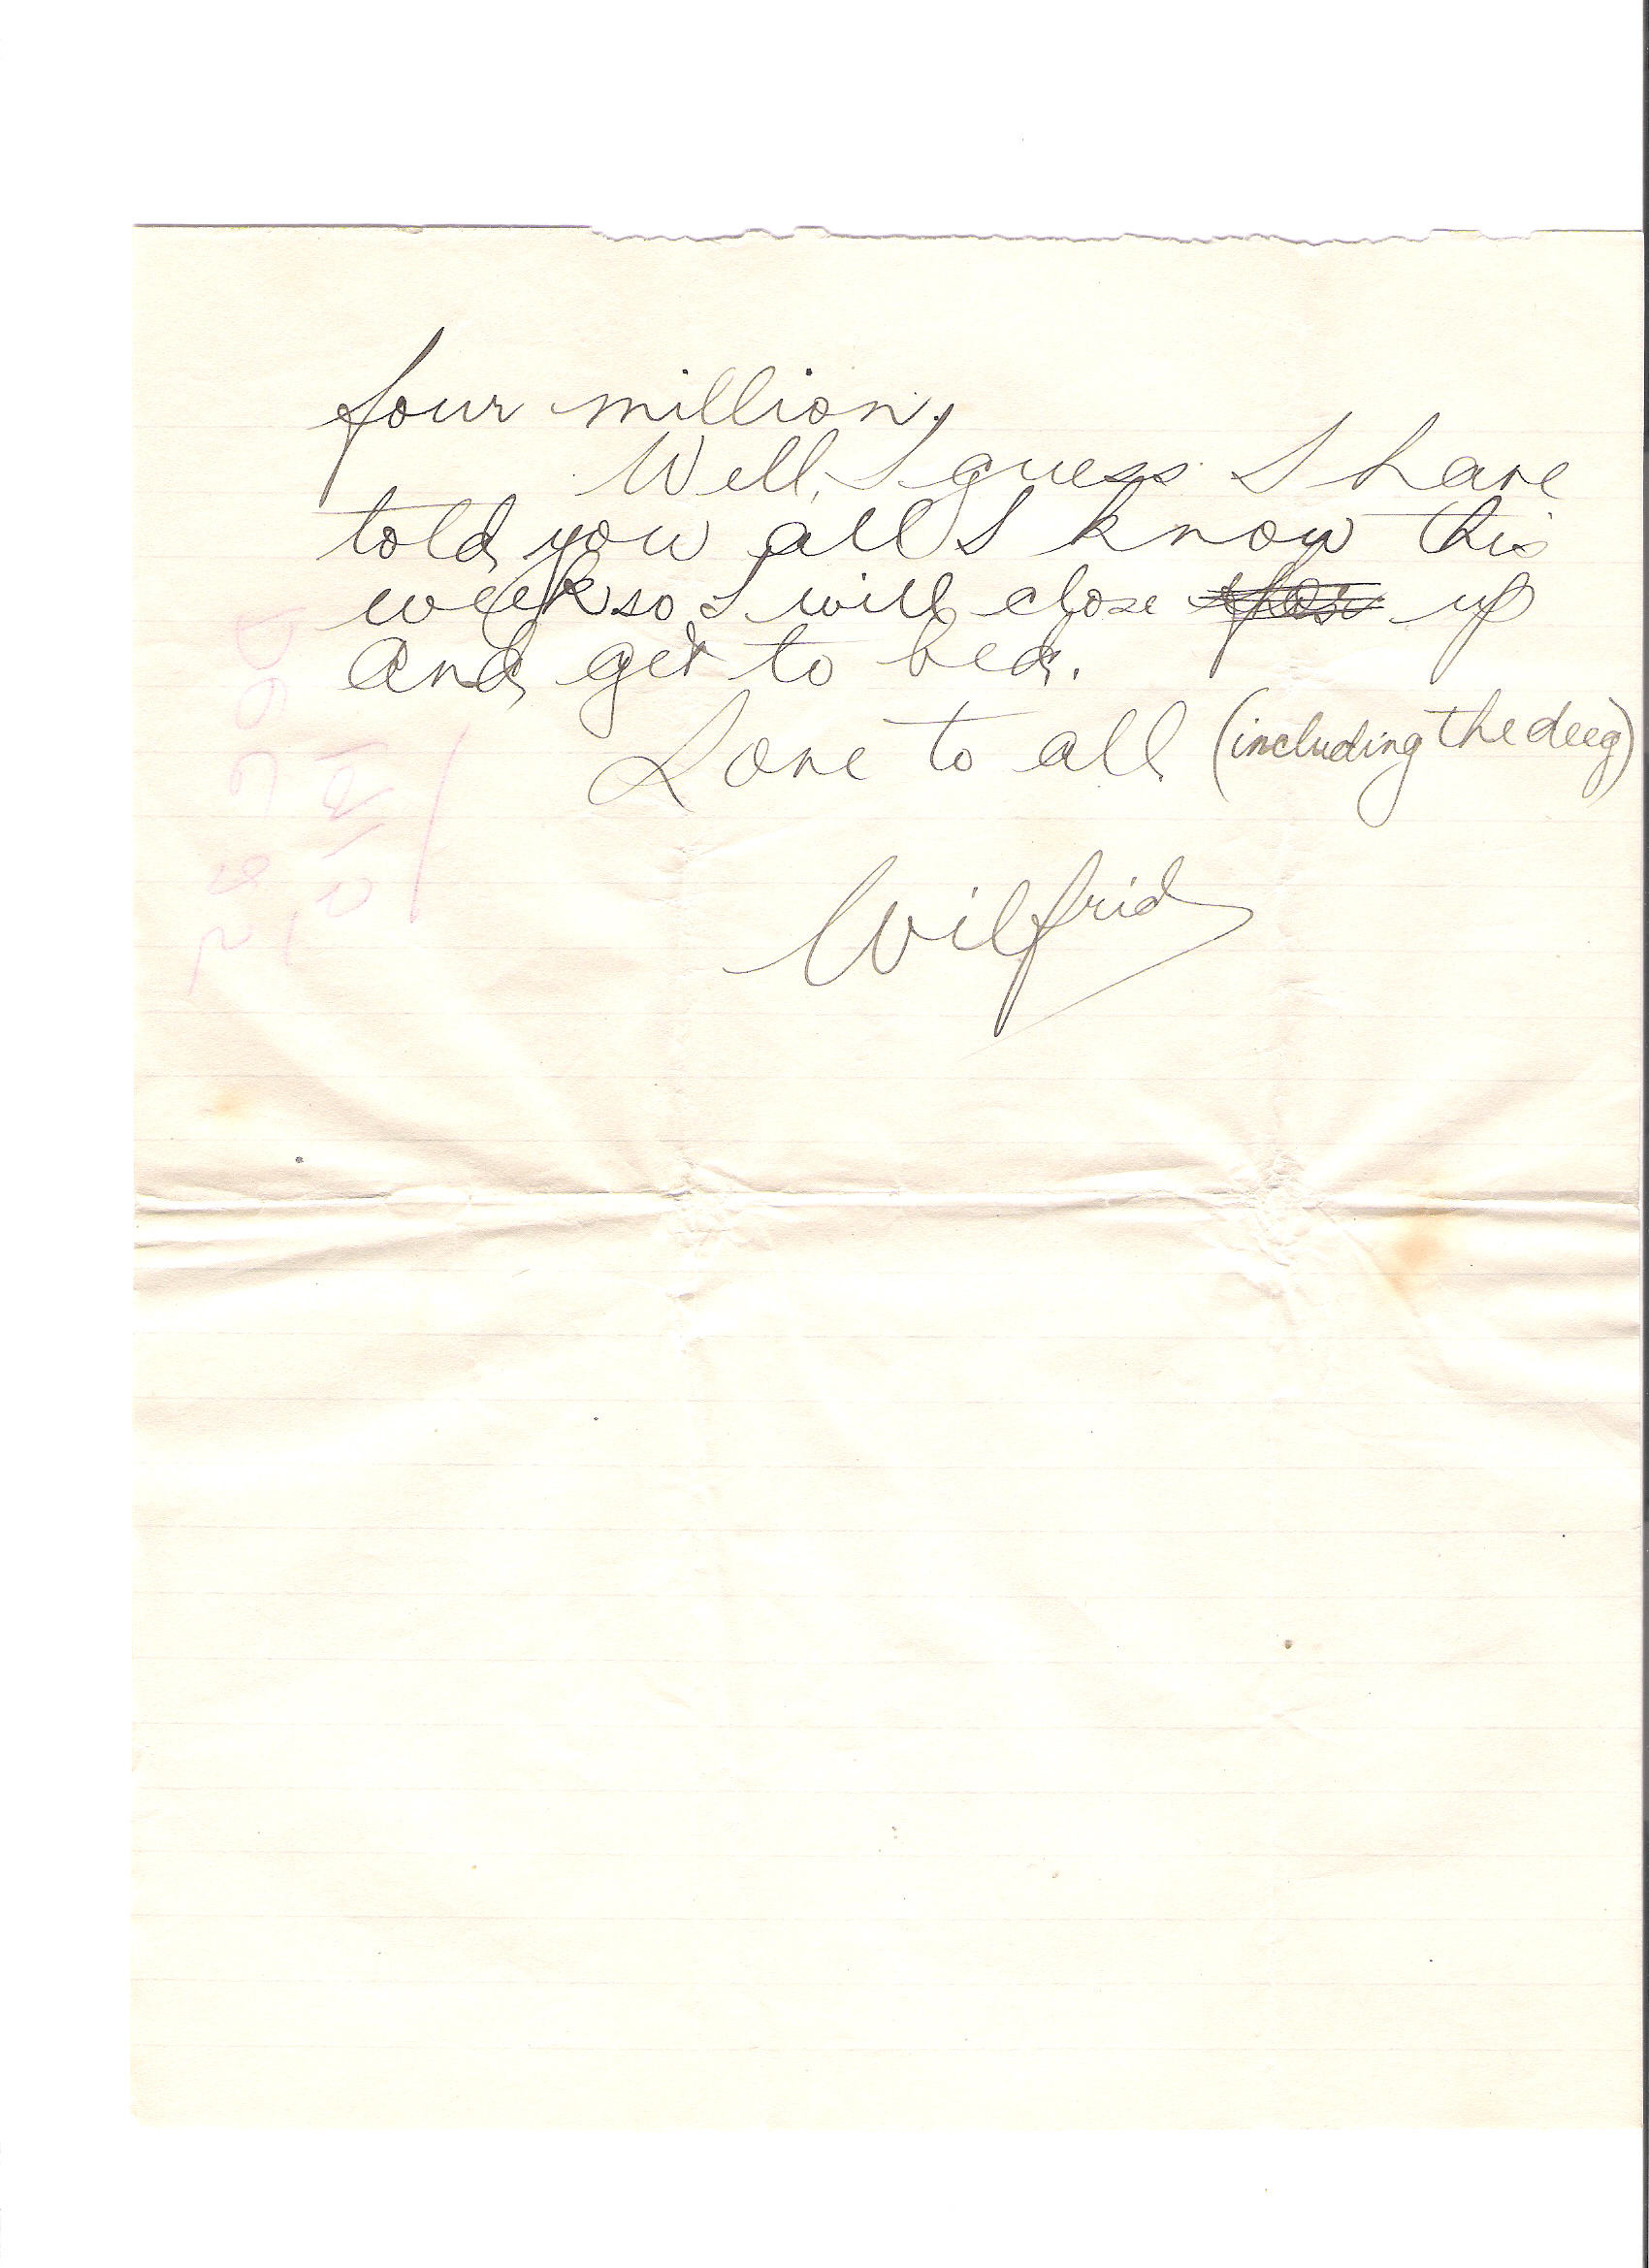 four million.
Well, I guess I have
told you all I know this
week so I will close up
and get to bed.
Love to all (including the deeg)
Wilfrid